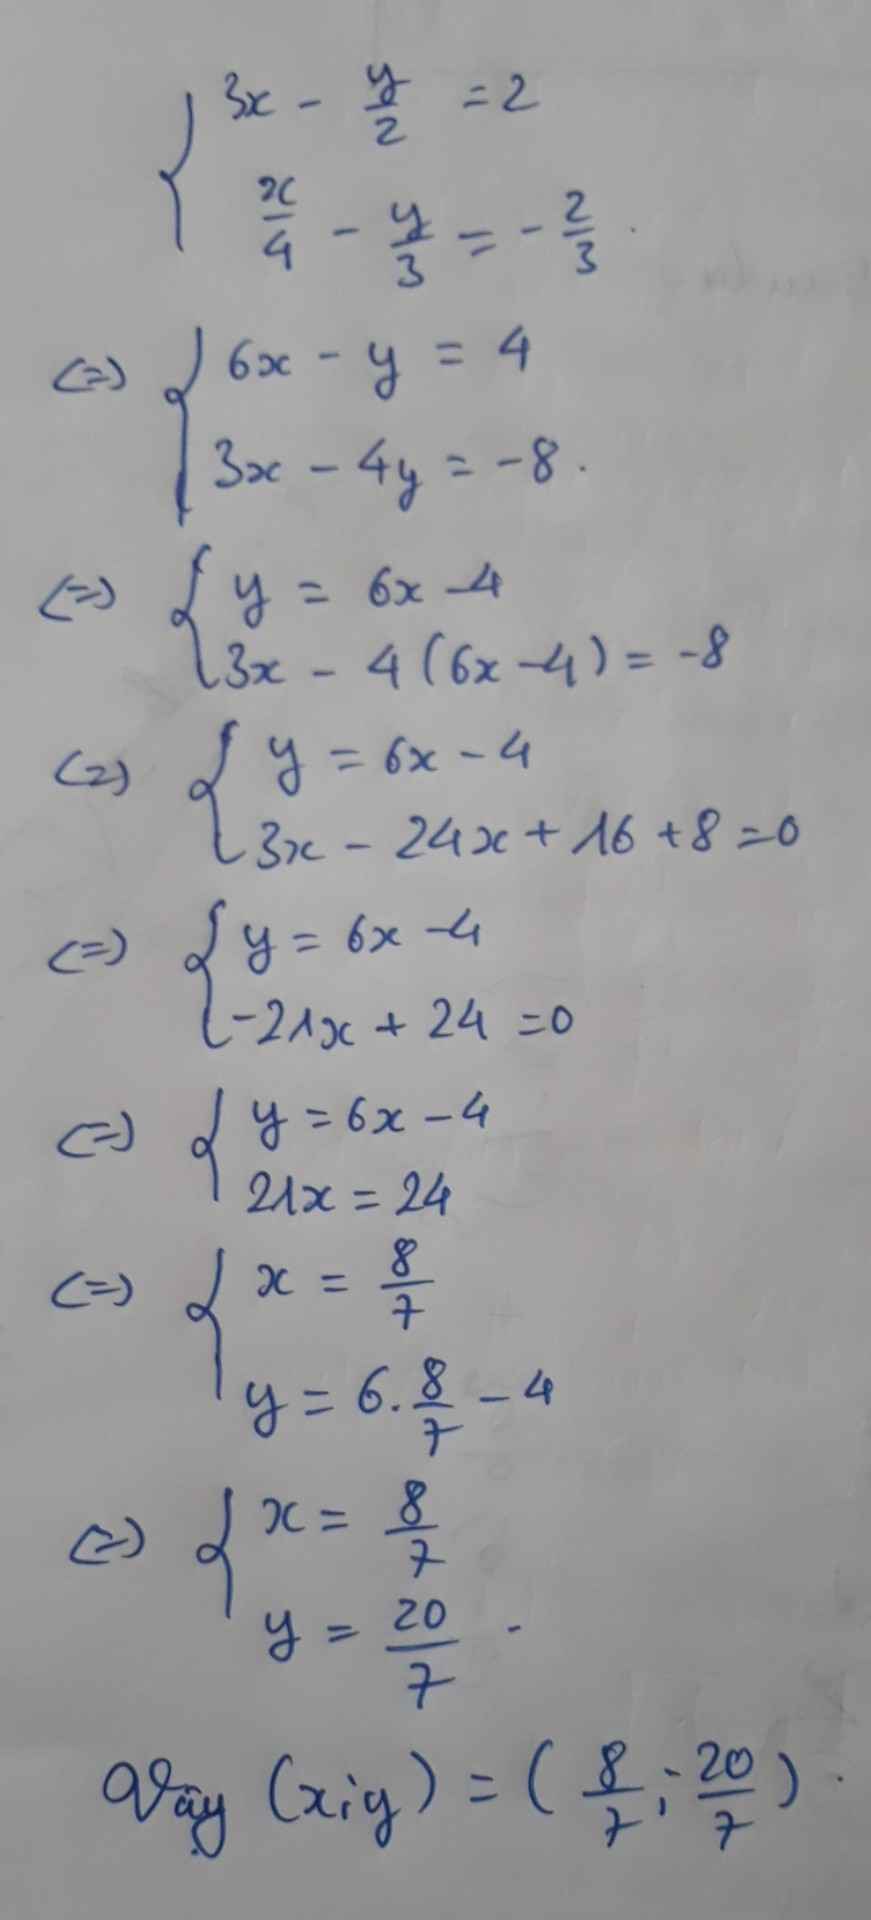 { 3x - y/2 = 2
x/4 - y/3 = - 2/3 .
<=> { 6x - y = 4
3x - 4y = -8 .
<=> { y = 6x - 4
3x - 4(6x - 4) = -8
<=> { y = 6x - 4
3x - 24x + 16 + 8 = 0
<=> { y = 6x - 4
-21x + 24 = 0
<=> { y = 6x - 4
21x = 24
<=> { x = 8/7
y = 6. 8/7 - 4
<=> { x = 8/7
y = 20/7 .
Vậy (x;y) = ( 8/7 ; 20/7 ) .